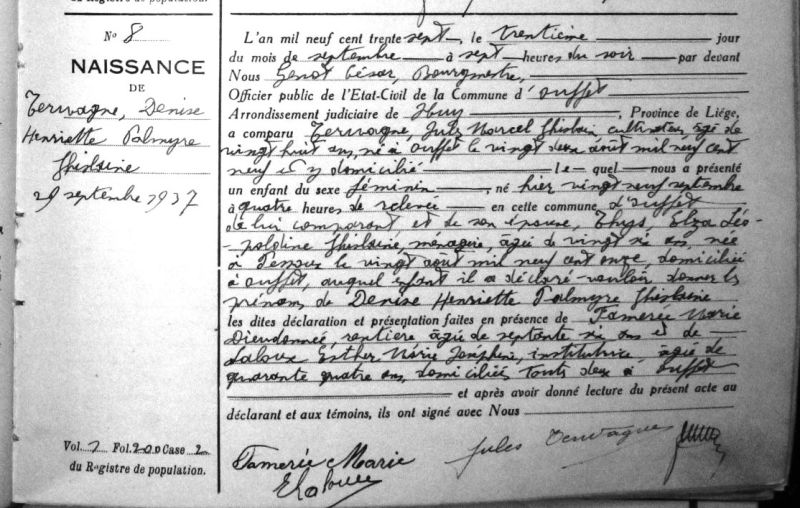 du Registre de population.
N° 8
NAISSANCE
DE
Terwagne, Denise
Henriette Palmyre
Ghislaine
29 septembre 1937
Vol. 2 Fol. 200 Case 2
du Registre de population.
L'an mil neuf cent trente sept, le trentième jour
du mois de septembre à sept heures du soir par devant
Nous Genot César, Bourgmestre,
Officier public de l'Etat-Civil de la Commune d'Ouffet
Arrondissement judiciaire de Huy, Province de Liége,
a comparu Terwagne, Jules Marcel Ghislain, cultivateur, âgé de
vingt huit ans, né à Ouffet le vingt deux août mil neuf cent
neuf et y domicilié le quel nous a présenté
un enfant du sexe féminin, né hier vingt neuf septembre
à quatre heures de relevée en cette commune d'Ouffet
de lui comparant et de son épouse, Thys Elza Léo-
poldine Ghislaine, ménagère, âgée de vingt six ans, née
à le vingt août mil neuf cent onze, domiciliée
à Ouffet, auquel enfant il a déclaré vouloir donner les
prénoms de Denise Henriette Palmyre Ghislaine
les dites déclaration et présentation faites en présence de Tamerée Marie
Dieudonnée, rentière âgée de septante six ans et de
Laloux Esther Marie Josephine, institutrice, âgée de
quarante quatre ans, domiciliés tous deux à Ouffet
et après avoir donné lecture du présent acte au
déclarant et aux témoins, ils ont signé avec Nous
Tamerée Marie
Jules Terwagne
E Laloux